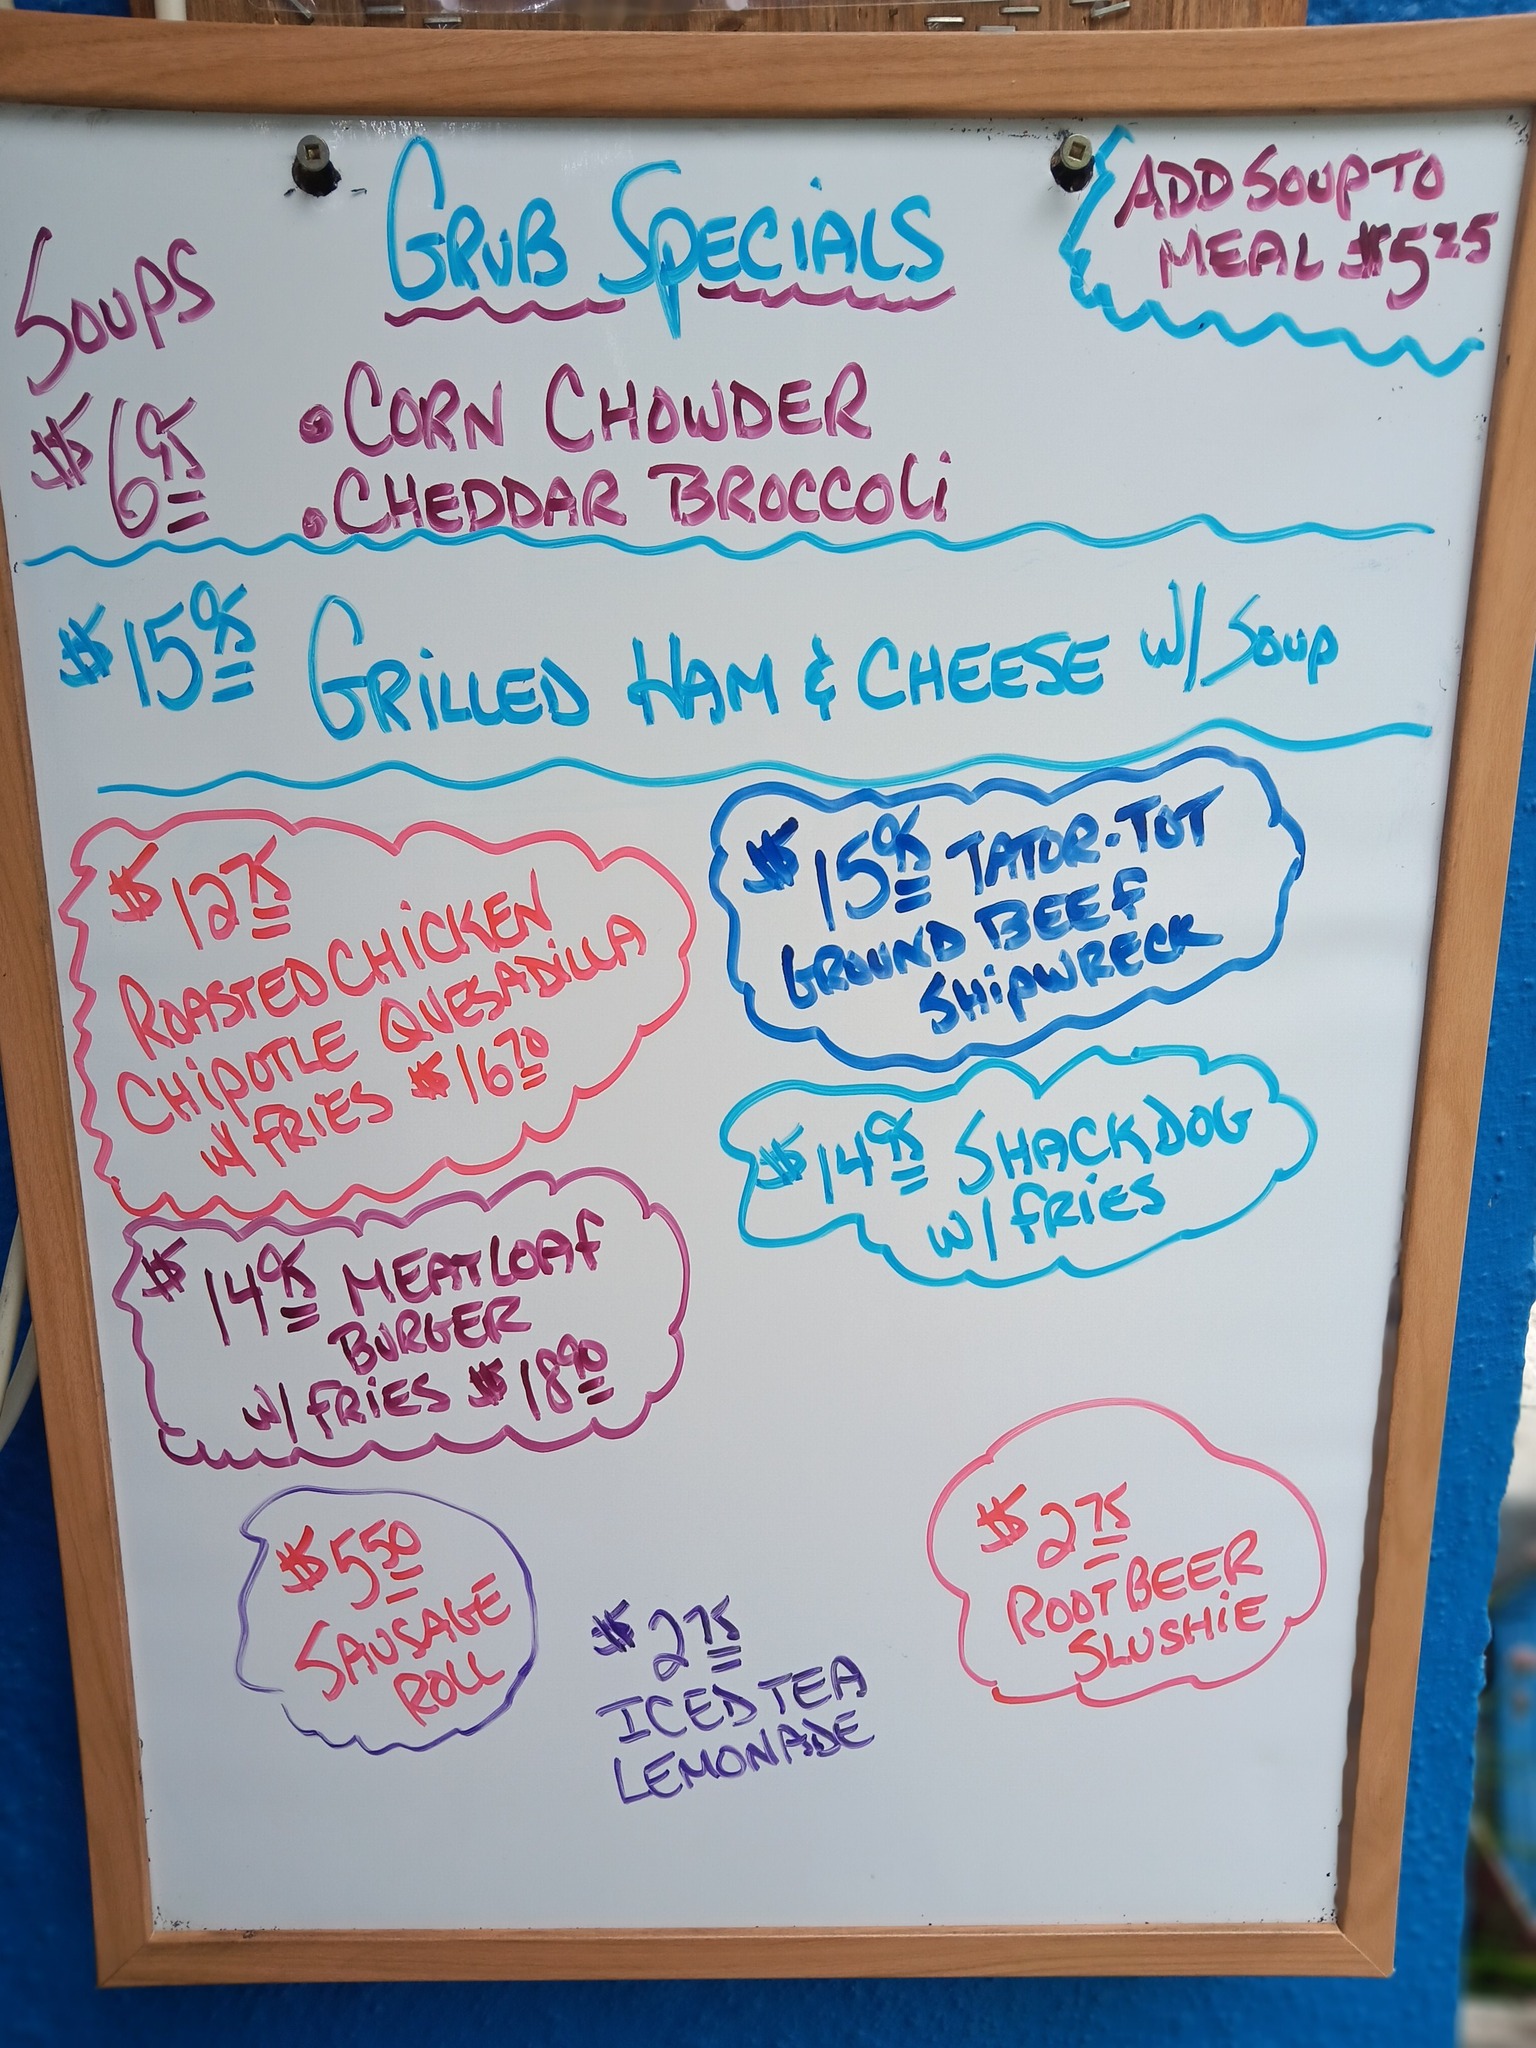 GRUB SPECIALS
ADD SOUP TO
MEAL $5.25
SOUPS
$6.95
• CORN CHOWDER
• CHEDDAR BROCCOLI
$15.95 GRILLED HAM & CHEESE W/ SOUP
$12.75
ROASTED CHICKEN
CHIPOTLE QUESADILLA
W/ FRIES $16.70
$15.95 TATOR-TOT
GROUND BEEF
SHIPWRECK
$14.95 SHACKDOG
W/ FRIES
$14.95 MEATLOAF
BURGER
W/ FRIES $18.90
$5.50
SAUSAGE
ROLL
$2.75
ICED TEA
LEMONADE
$2.75
ROOTBEER
SLUSHIE